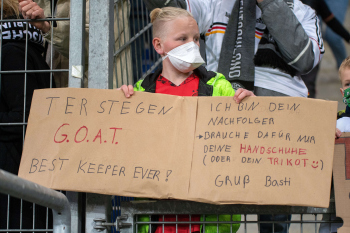 TER STEGEN
G.O.A.T.
BEST KEEPER EVER?
ICH BIN DEIN
NACHFOLGER
→ BRAUCHE DAFÜR NUR
DEINE HANDSCHUHE
(ODER DEIN TRIKOT)
GRUß Basti